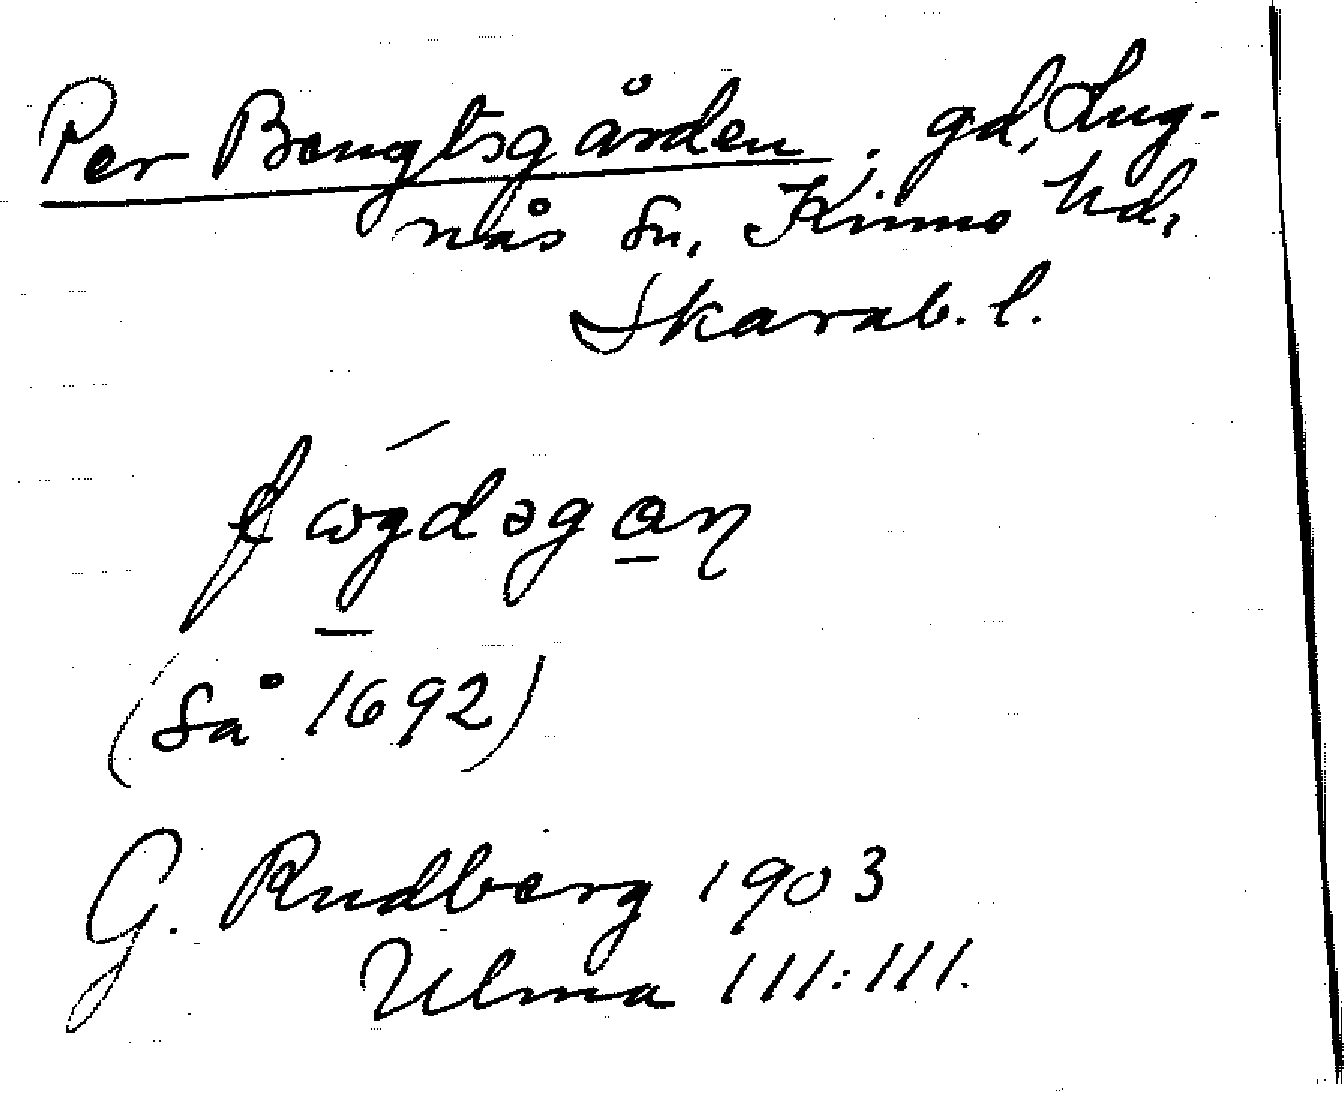 Per Bengtsgården, gd, Lug-
nås sn, Kinne hd,
Skarab. l.
(Så 1692)
G. Rudberg 1903
Ulma 111:111.